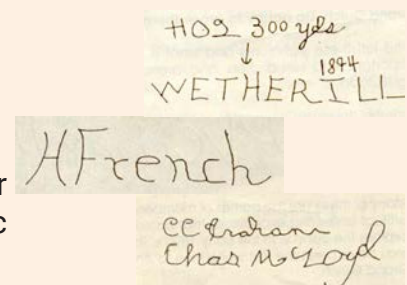 HOL 300 yds
↓
1894
WETHERILL
H French
r
c
CC Graham
Chas M Loyd